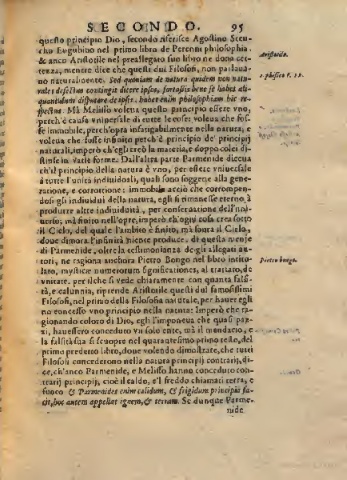 SECONDO. 95
questo principio Dio, secondo riferisce Agostino Steu-
cho Eugubino nel primo libro de Perenni philosophia.
& anco Aristotile nel preallegato suo libro ne dona cer-
tezza, mentre dice che questi dui Filosofi, non parlaua-
no naturalmente. Sed quoniam de natura quidem non natu-
rales defectus contingit dicere ipsos, fortassis bene se habet ali-
quantulum disputare de ipsis. habet enim philosophiam hic re-
spectus. Mà Melisso voleua questo principio essere vno,
perch'è causa vniuersale di tutte le cose: voleua che fos-
se immobile, perch'opra infatigabilmente nella natura, e
voleua che fosse infinito perch'è principio de' principij
naturali, imperò ch'egli creò la materia, e doppo cole di-
stinse in varie forme. Dall'altra parte Parmenide diceua
ch'il principio della natura è vno, per essere vniuersale
à tutte l'unità indiuiduali, quali sono soggette alla gene-
ratione, e corrotione: immobile acciò che corrompen-
dosi gli indiuidui della natura, egli si rimanesse eterno, à
produrre altre indiuidoità, per conseruatione dell'uni-
uerso; mà finito nell'opre, imperò ch'ogni cosa crea sotto
il Cielo, del quale l'ambito è finito, mà fuora il Cielo,
doue dimora l'infinità niente produce: di questa mente
di Parmenide, oltre la testimonianza de gli allegati au-
tori, ne ragiona anchora Pietro Bongo nel libro intito-
lato, mysticæ numerorum significationes, al trattato, de
vnitate. per il che si vede chiaramente con quanta falsi-
tà, e calunnia, riprende Aristotile questi dui famosissimi
Filosofi, nel primo della Filosofia naturale, per hauer egli
no concesso vno principio nella natura: Imperò che ra-
gionando coloro di Dio, egli l'imponeua che quasi paz-
zi, hauessero conceduto vn solo ente, mà il mondario, e
la falsità sua si scuopre nel quarantesimo primo teste, del
primo predetto libro, doue volendo dimostrare, che tutti
Filosofi concederono nella natura principij contrarij, di-
ce, ch'anco Parmenide, e Melisso hanno conceduto con-
trarij principij, cioè il caldo, e'l freddo chiamati terra, e
fuoco & Parmenides enim calidum, & frigidum principia fa-
cit, hoc autem appellat ignem, & terram. Se dunque Parme-
nide
Aristotile.
Pietro bongo.